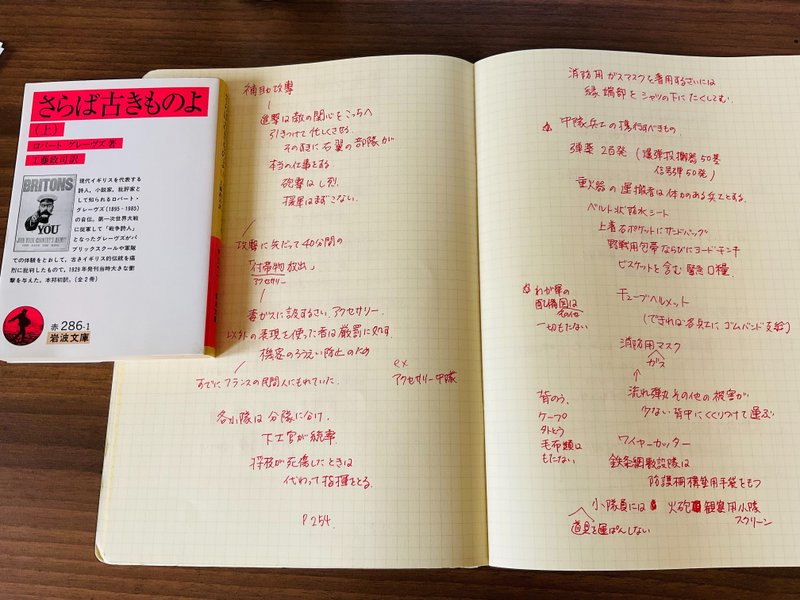 さらば古きものよ
（上）
ロバート・グレーヴズ著
工藤政司訳
BRITONS
YOU
現代イギリスを代表する
詩人，小説家，批評家と
して知られるロバート・
グレーヴズ(1895-1985)
の自伝．第一次世界大戦
に従軍して「戦争詩人」
となったグレーヴズがパ
ブリックスクールや軍隊
での体験をとおして，古きイギリス的伝統を痛
烈に批判したもので，1929年発刊当時大きな衝
撃を与えた．本邦初訳．（全2冊）
赤 286-1
岩波文庫
補助攻撃
進撃は敵の関心をこっちへ
引きつけて忙しくさせる
そのすきに右翼の部隊が
本当の仕事をする
砲撃はし烈.
援軍はまずこない.
攻撃に先だって40分間の
「付帯物放出」
アクセサリー
毒ガスに該するさい、アクセサリー
以外の表現を使った者は厳罰に処す
機密のろうえい防止のため
すでにフランスの民間人にもれていた.
ex
アクセサリー中隊
各小隊は分隊に分け.
下士官が統率.
将校が死傷したときは
代わって指揮をとる.
P254.
消防用ガスマスクを着用するさいには
縁端部をシャツの下にたくしこむ.
中隊兵士の携行すべきもの
弾薬 2百発（爆弾投擲器50基
信号弾50発）
重火器の運搬者は体力のある兵士とする.
ベルト状防水シート
上着右ポケットにサンドバッグ
野戦用包帯ならびにヨードチンキ
ビスケットを含む緊急口糧
わが軍の
配備図は
その他
一切もたない
チューブヘルメット
（できれば各兵士に、ゴムバンド支給）
消防用マスク
ガス
流れ弾丸その他の被害が
少ない背中にくくりつけて運ぶ
背のう、
ケープ
外とう
毛布類は
もたない
ワイヤーカッター
鉄条網敷設隊は
防護柵構築用手袋をもつ
小隊員には 火砲観察用小隊
スクリーン
道具を運ぱんしない